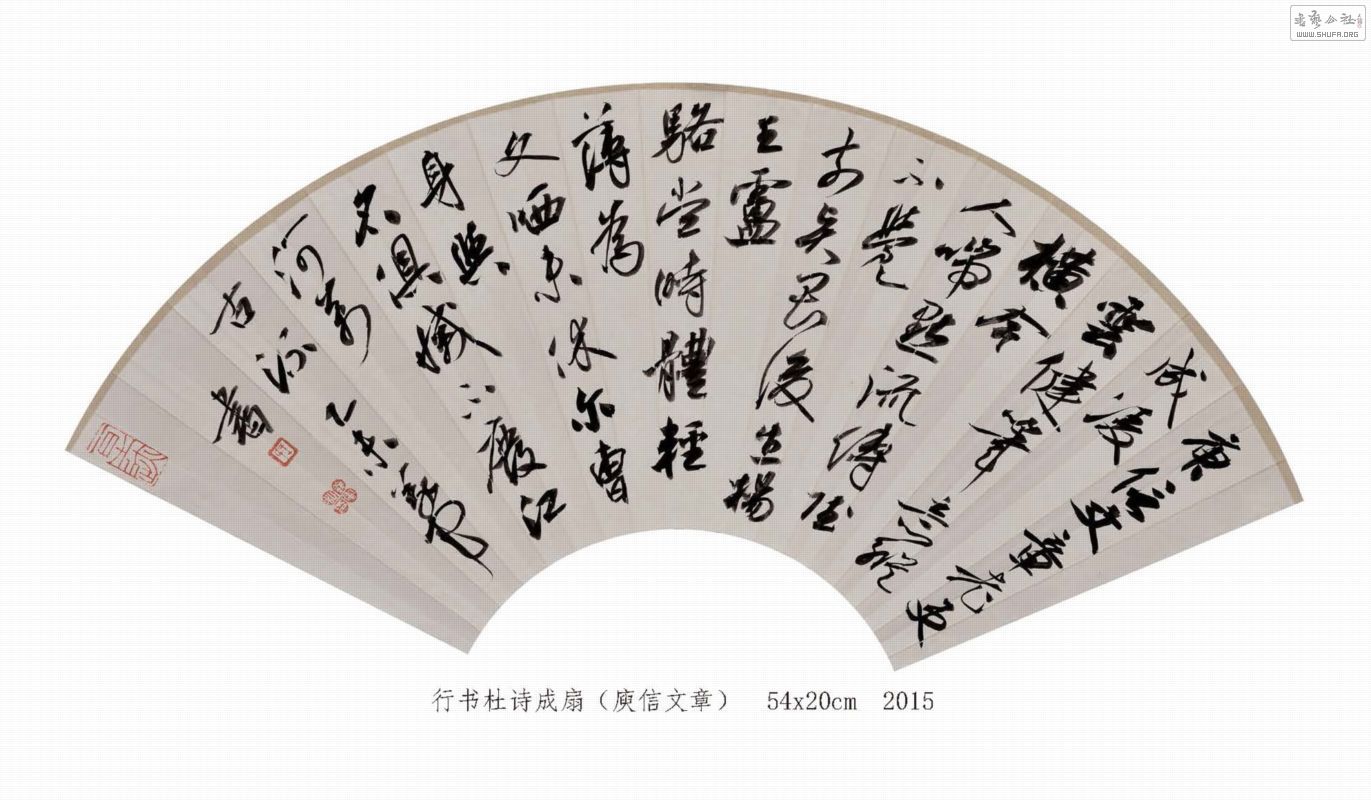 庾信文章老更
成淩
雲健筆意縱
橫今
人嗤點流傳賦
不覺
前賢畏後生楊
王盧
駱當時體輕
薄為
文哂未休爾曹
身與
名俱滅不廢江
河萬
古流乙未
書
行书杜诗成扇（庾信文章） 54x20cm 2015
书艺公社
WWW.SHUFA.ORG